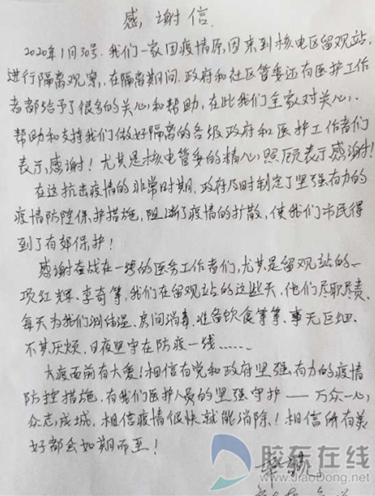 感谢信
2020年1月30号,我们一家因疫情原因来到核电区留观站,
进行隔离观察,在隔离期间,政府和社区管委还有医护工作
者都给予了很多的关心和帮助,在此我们全家对关心、
帮助和支持我们做好隔离的各级政府和医护工作者们
表示感谢!尤其是核电管委的精心照顾表示感谢!
在这抗击疫情的非常时期,政府及时制定了坚强有力的
疫情防控保护措施,阻断了疫情的扩散,使我们市民得
到了有郊保护!
感谢奋战在一线的医务工作者们,尤其是留观站的
红辉、李奇等,我们在留观站的这些天,他们尽职尽责,
每天为我们测体温、房间消毒、准备饮食等等、事无巨细,
不其厌烦,日夜坚守在防疫一线……
大疫面前有大爱!相信有党和政府坚强有力的疫情
防控措施,有我们医护人员的坚强守护——万众一心,
众志成城,相信疫情很快就能消除!相信所有美
好都会如期而至!
胶东在线
www.jiaodong.net